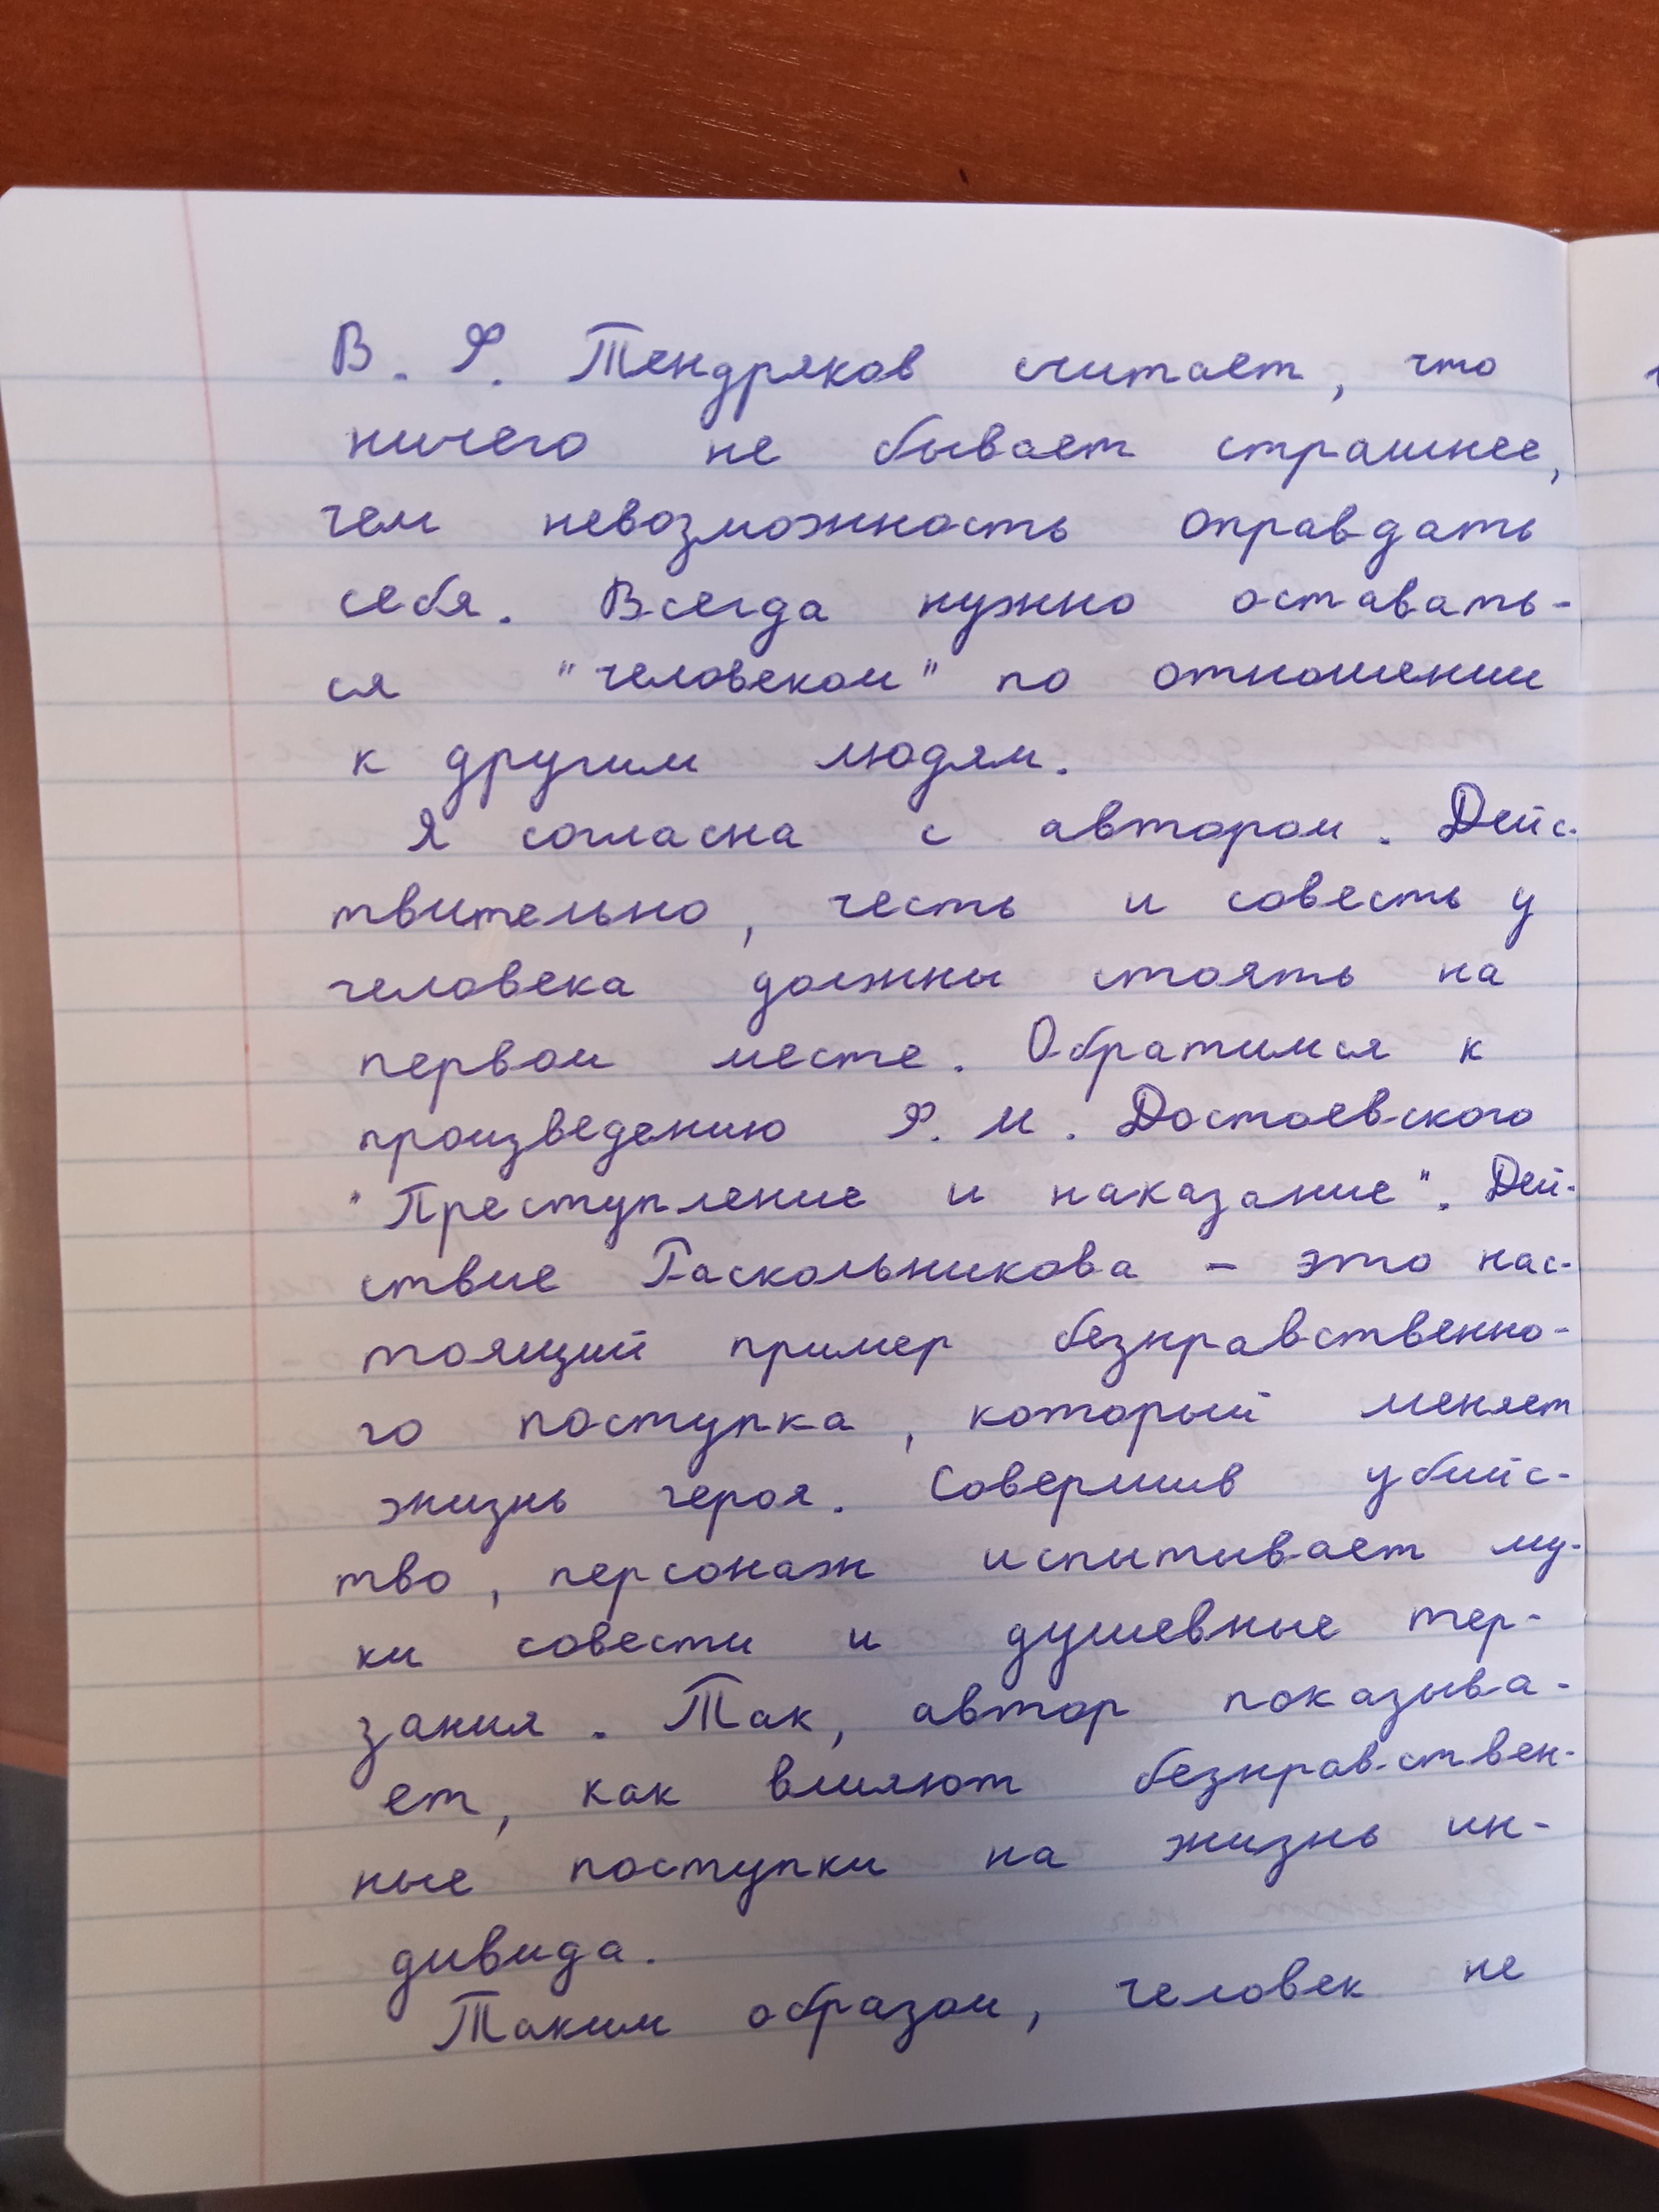 В. Ф. Тендряков считает, что
ничего не бывает страшнее,
чем невозможность оправдать
себя. Всегда нужно оставать-
ся "человеком" по отношении
к другим людям.
Я согласна с автором. Дейс-
твительно, честь и совесть у
человека должны стоять на
первом месте. Обратимся к
произведению Ф. М. Достоевского
"Преступление и наказание". Дей-
ствие Раскольникова – это нас-
тоящий пример безнравственно-
го поступка, который меняет
жизнь героя. Совершив убийс-
тво, персонаж испытывает му-
ки совести и душевные тер-
зания. Так, автор показыва-
ет, как влияют безнравствен-
ные поступки на жизнь ин-
дивида.
Таким образом, человек не